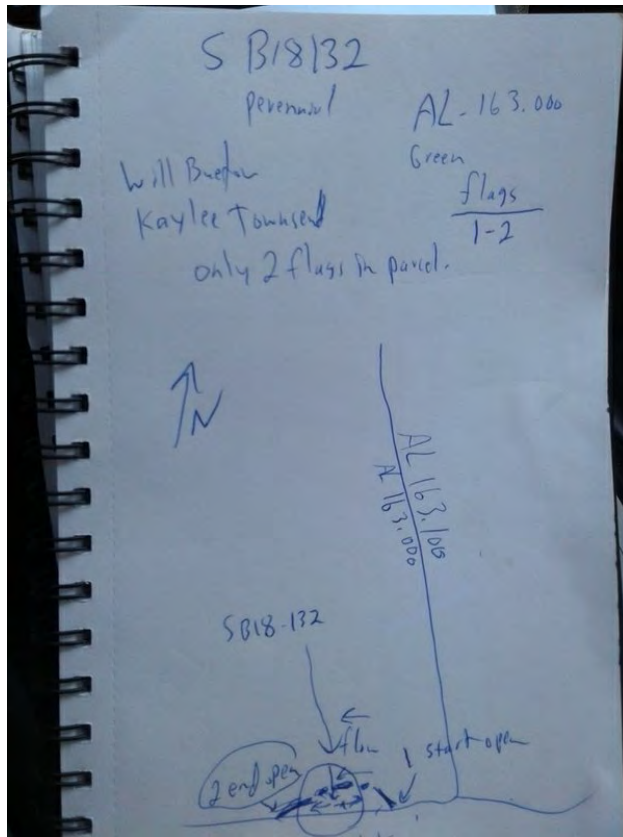 S B18132
perennial
AL-163.000
Green
flags
1-2
Will
Kaylee Townsend
only 2 flags in parcel.
N
AL 163.100
AL 163.000
SB18-132
flow
1 start open
2 end open